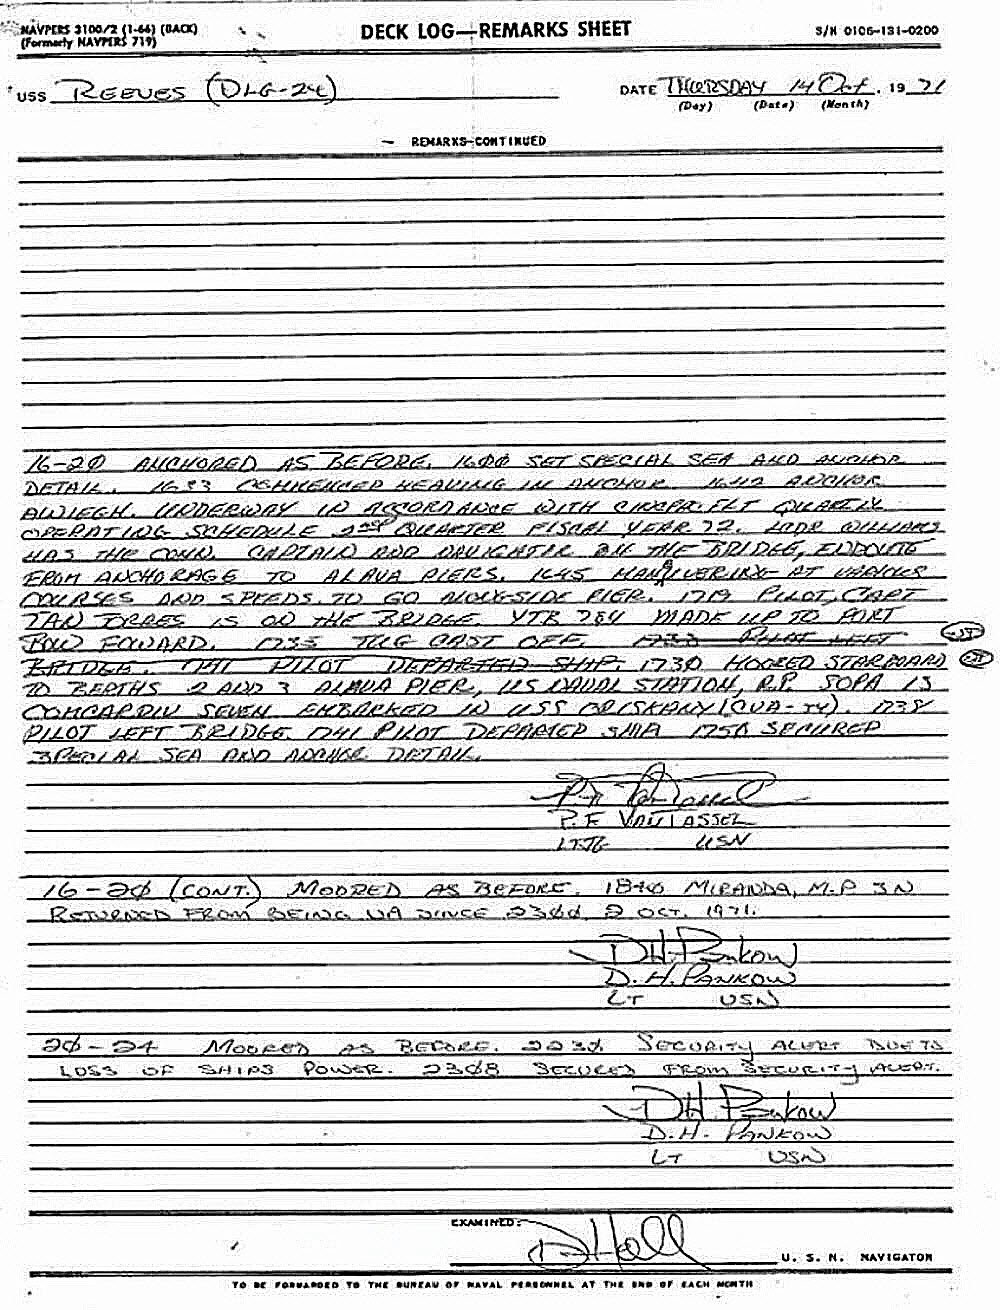 NAVPERS 3100/2 (1-66) (BACK)
(Formerly NAVPERS 719)
DECK LOG—REMARKS SHEET
S/N 0106-131-0200
USS REEVES (DLG-24)
DATE THURSDAY 14 Oct. 19 71
(Day) (Date) (Month)
— REMARKS—CONTINUED
16-20 ANCHORED AS BEFORE. 1600 SET SPECIAL SEA AND ANCHOR
DETAIL. 1633 COMMENCED HEAVING IN ANCHOR. 1642 ANCHOR
AWIEGH. UNDERWAY IN ACCORDANCE WITH CINCPACFLT QUARTELY
OPERATING SCHEDULE 2nd QUARTER FISCAL YEAR 72. LCDR WILLIAMS
HAS THE CONN. CAPTAIN AND NAVIGATOR ON THE BRIDGE, ENROUTE
FROM ANCHORAGE TO ALAVA PIERS. 1645 MANUVERING AT VARIOUS
COURSES AND SPEEDS TO GO ALONGSIDE PIER. 1719 PILOT, CAPT
TAN TORRES IS ON THE BRIDGE. YTB 784 MADE UP TO PORT
BOW FOWARD. 1735 TUG CAST OFF. 1738 PILOT LEFT
BRIDGE. 1741 PILOT DEPARTED SHIP. 1730 MOORED STARBOARD
TO BERTHS 2 AND 3 ALAVA PIER, US NAVAL STATION, R.P. SOPA IS
COMCARDIV SEVEN EMBARKED IN USS ORISKANY (CVA-34). 1738
PILOT LEFT BRIDGE 1741 PILOT DEPARTED SHIP 1750 SECURED
SPECIAL SEA AND ANCHOR DETAIL.
P.F. VANTASSEL
LTJG USN
16-20 (CONT.) MOORED AS BEFORE. 1840 MIRANDA, M.P SN
RETURNED FROM BEING UA SINCE 2300, 2 OCT. 1971.
DH Pankow
D. H. PANKOW
LT USN
20-24 MOORED AS BEFORE. 2230 SECURITY ALERT DUE TO
LOSS OF SHIPS POWER. 2308 SECURED FROM SECURITY ALERT.
DH Pankow
D. H. PANKOW
LT USN
EXAMINED: D Hall
U. S. N. NAVIGATOR
TO BE FORWARDED TO THE BUREAU OF NAVAL PERSONNEL AT THE END OF EACH MONTH